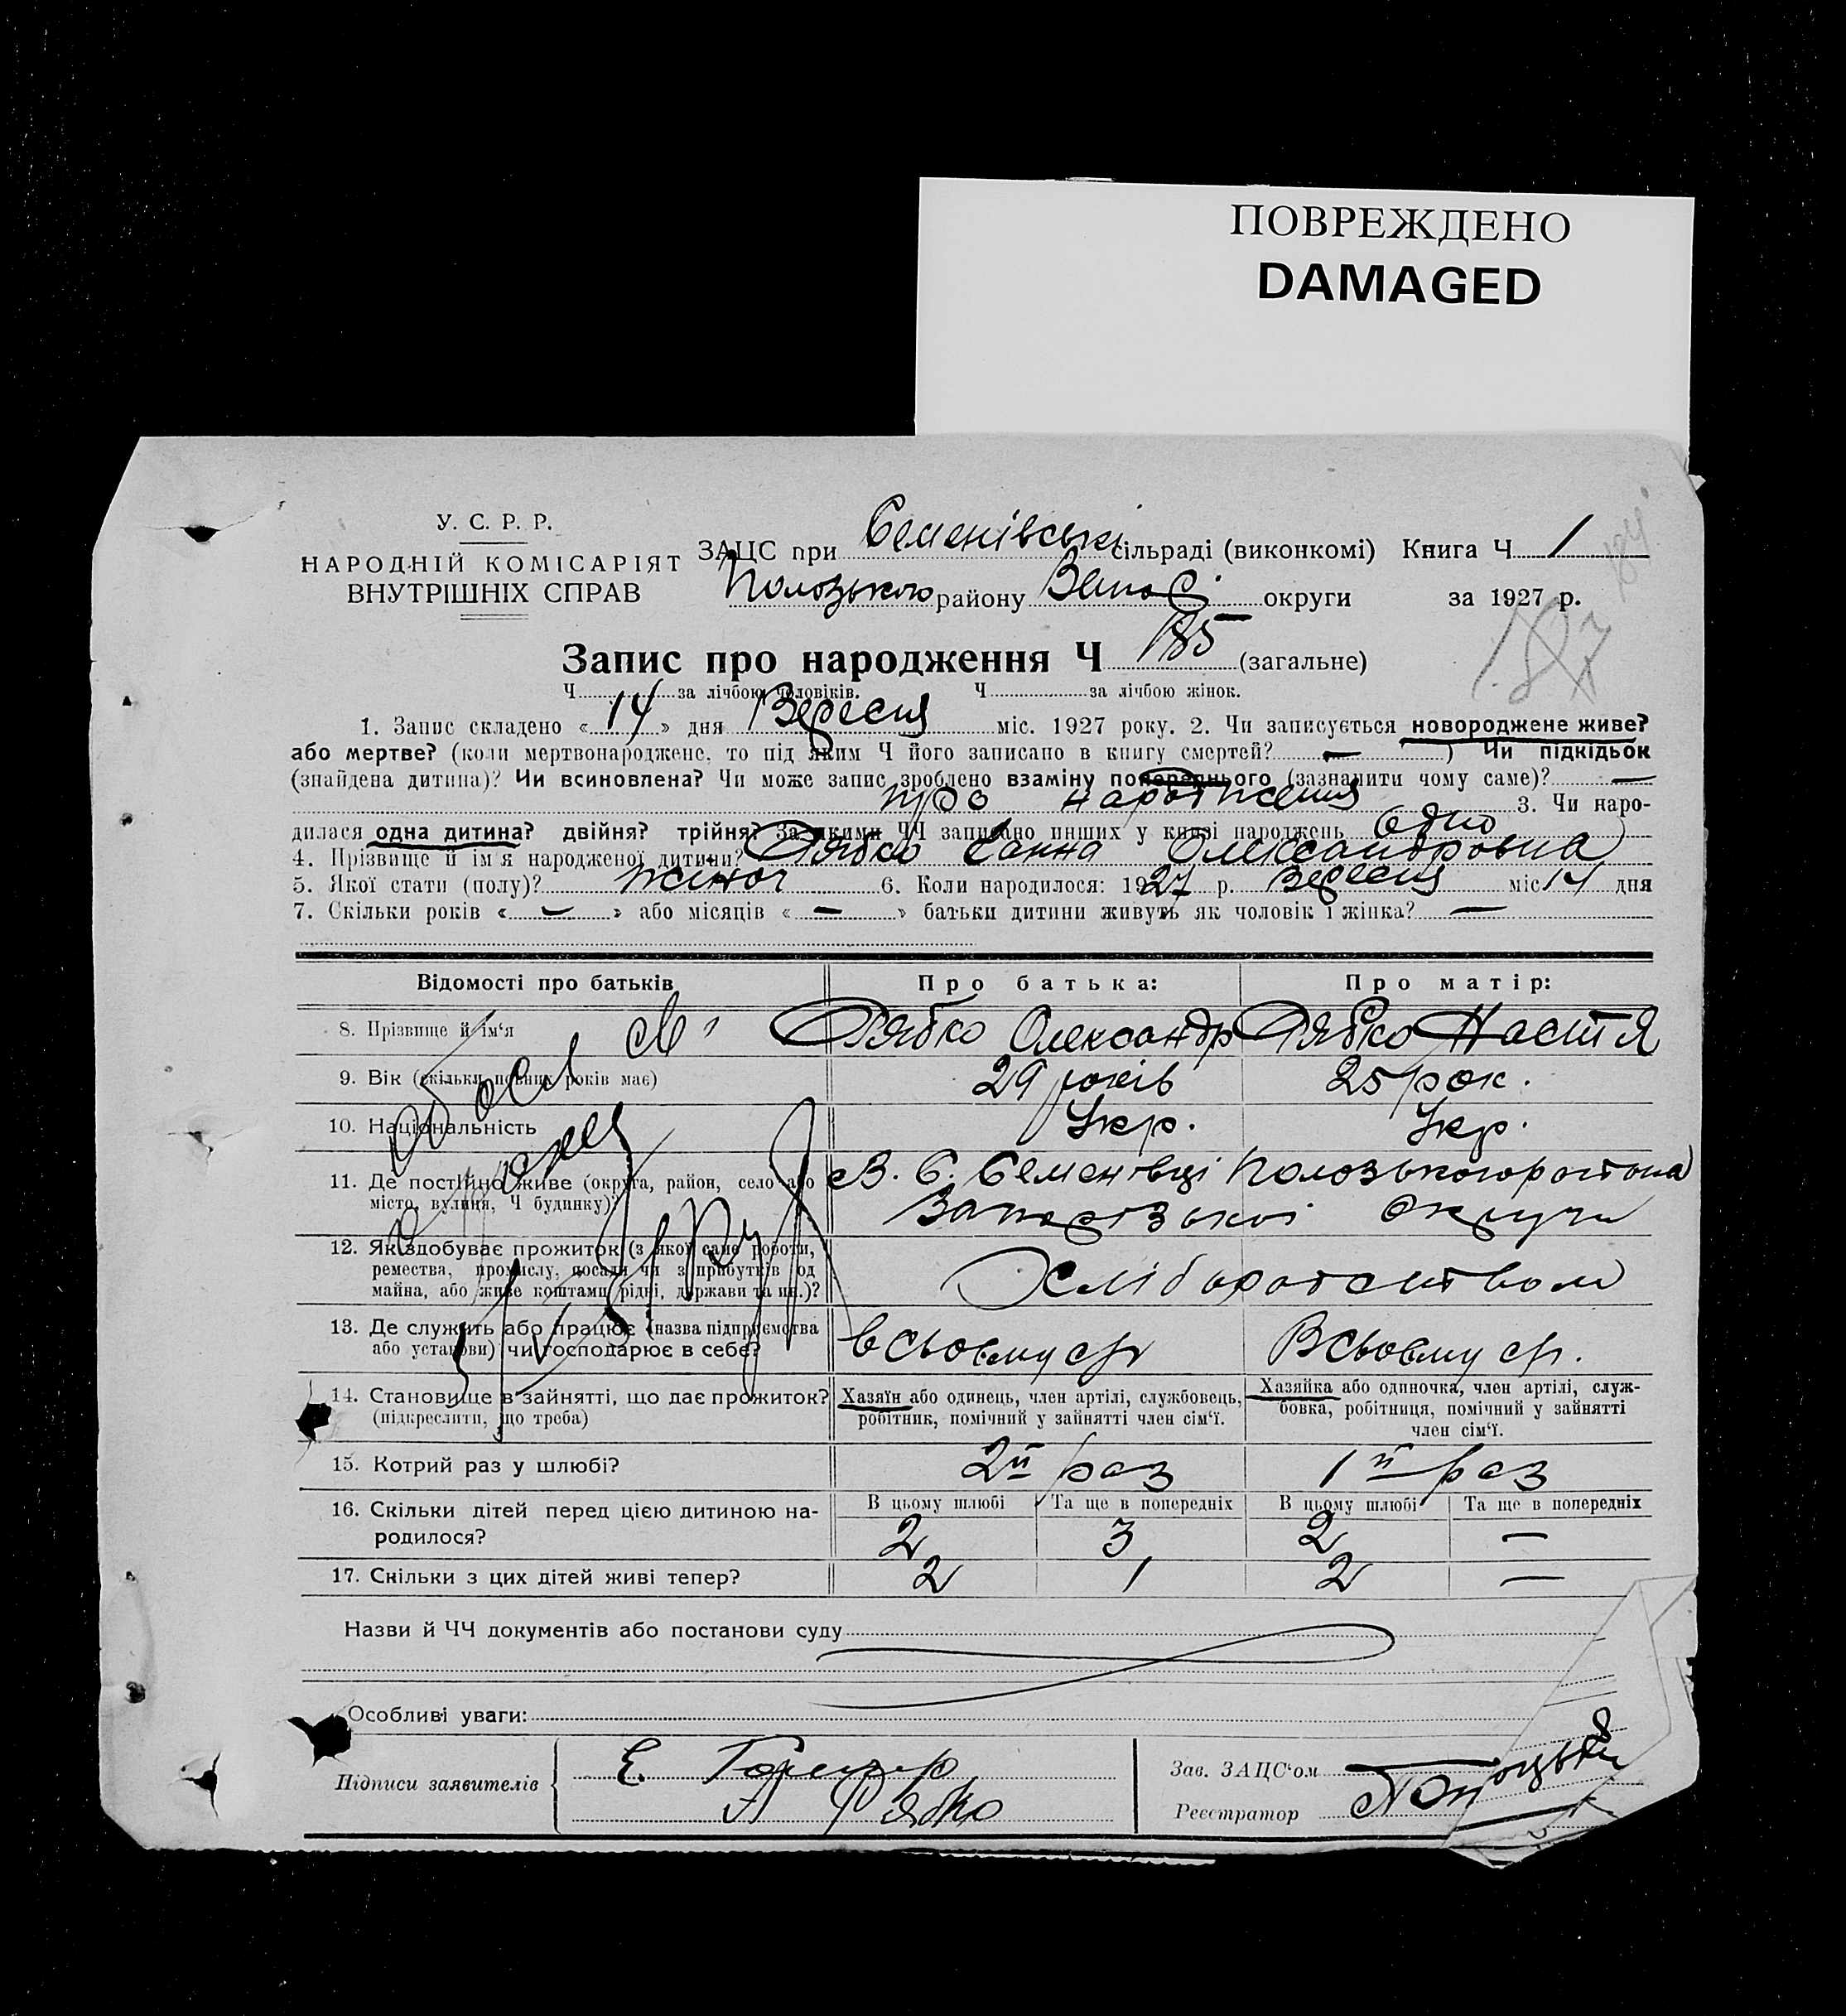 ПОВРЕЖДЕНО
DAMAGED
У. С. Р. Р.
НАРОДНІЙ КОМІСАРІЯТ
ВНУТРІШНІХ СПРАВ
ЗАЦС при Семенівські сільраді (виконкомі) Книга Ч 1
Полозького району Запор. округи за 1927 р.
Запис про народження Ч 185 (загальне)
187
Ч за лічбою чоловіків. Ч за лічбою жінок.
1. Запис складено « 14 » дня Вересня міс. 1927 року. 2. Чи записується новороджене живе?
або мертве? (коли мертвонароджене, то під яким Ч його записано в книгу смертей? — ) Чи підкідьок
(знайдена дитина)? Чи всиновлена? Чи може запис зроблено взаміну попереднього (зазначити чому саме)? —
про народження 3. Чи наро-
дилася одна дитина? двійня? трійня? За якими ЧЧ записано инших у книзі народжень одно
4. Прізвище й ім'я народженої дитини? Рябко Ганна Олександровна
5. Якої стати (полу)? жіноч 6. Коли народилося: 1927 р. Вересня міс 14 дня
7. Скільки років « — » або місяців « — » батьки дитини живуть як чоловік і жінка? —
Відомості про батьків Про батька: Про матір:
8. Прізвище й ім'я Рябко Олександр Рябко Настя
9. Вік (скільки повних років має) 29 років 25 рок.
10. Національність Укр. Укр.
11. Де постійно живе (округа, район, село або В. С. Семенівці Полозького района
місто, вулиця, Ч будинку)? Запорізької Округи
12. Як здобуває прожиток (з якої саме роботи,
ремества, промислу, посади чи з прибутків од Хліборобством
майна, або живе коштами рідні, держави та ин.)?
13. Де служить або працює (назва підприємства
або установи) чи господарює в себе? Всьому ср Всьому ср.
14. Становище в зайнятті, що дає прожиток? Хазяїн або одинець, член артілі, службовець, Хазяйка або одиночка, член артілі, служ-
(підкреслити, що треба) робітник, помічний у зайнятті член сім'ї. бовка, робітниця, помічний у зайнятті
член сім'ї.
15. Котрий раз у шлюбі? 2й раз 1й раз
16. Скільки дітей перед цією дитиною на- В цьому шлюбі Та ще в попередніх В цьому шлюбі Та ще в попередніх
родилося? 2 3 2 —
17. Скільки з цих дітей живі тепер? 2 1 2 —
Назви й ЧЧ документів або постанови суду
Особливі уваги:
Підписи заявителів Е.
А Рябко
Зав. ЗАЦС'ом
Реєстратор